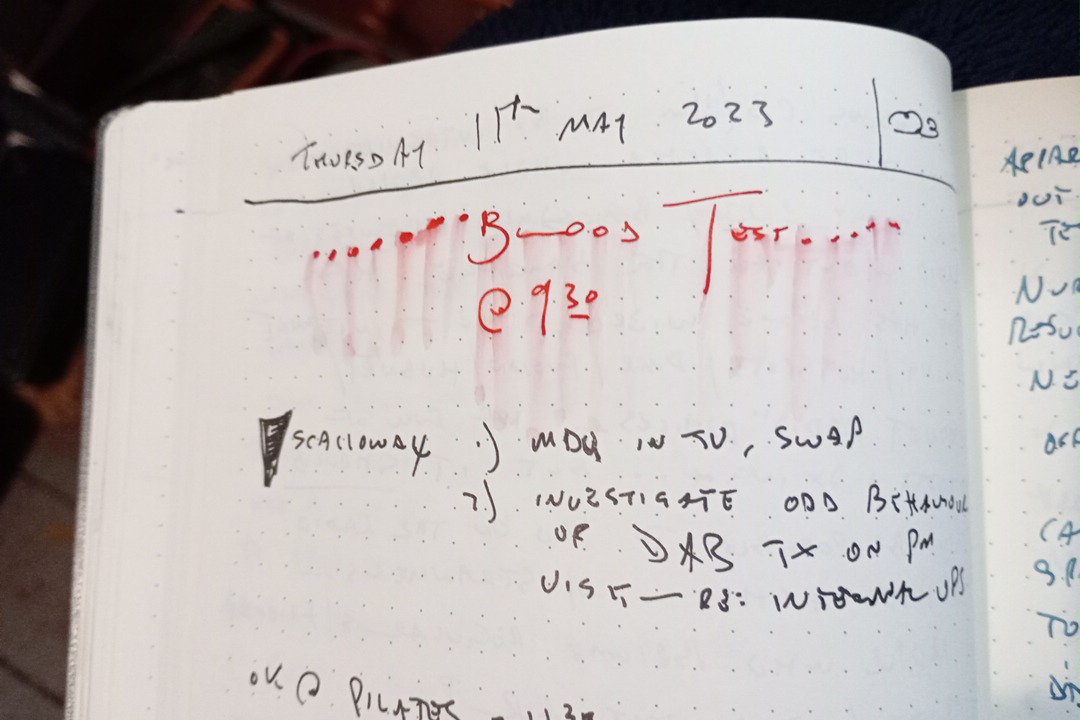 THURSDAY 11th MAY 2023
BLOOD TEST
@ 930
SCALLOWAY 1) MDU IN TU, SWAP
2) INVESTIGATE ODD BEHAVIOUR
OF DAB TX ON PM
VISIT — RE: INTERNAL UPS
OK @ PILATES
OUT
TO